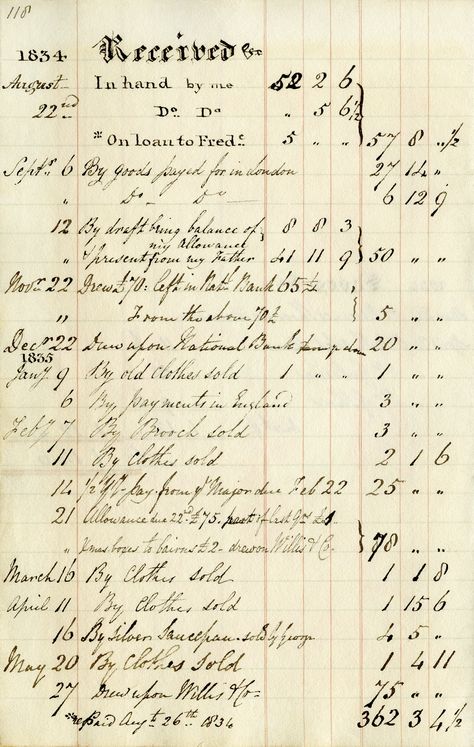 118
1834 Received &c
August In hand by me 52 2 6
22nd Do. Do „ 5 6½
* On loan to Fredc. 5 „ „ 57 8 „½
Septr 6 By goods payed for in London 27 14 „
„ Do – Do – 6 12 9
12 By draft being balance of my Allowance 8 8 3
„ present from my Father 41 11 9 50 „ „
Novr 22 Drew £70: left in Natl. Bank 65£
„ From the above 70£ 5 „ „
Decr 22 Drew upon National Bank 20 „ „
1835
Jany. 9 By old clothes sold 1 „ „ 1 „ „
6 By payments in England 3 „ „
Feby 7 By Brooch sold 3 „ „
11 By Clothes sold 2 1 6
14 ½ Yr. Pay from ye Major due Feb 22 25 „ „
21 Allowance due 22d £75. part of last qr £1
„ Xmas boxes to bairns £2 – drew on Willis & Co. 78 „ „
March 16 By Clothes sold 1 1 8
April 11 By Clothes sold 1 15 6
16 By Silver Saucepan – sold by George 4 5 „
May 20 By Clothes sold 1 4 11
27 Drew upon Willis & Co – 75 „ „
Paid Augt. 26th 1836 362 3 4½